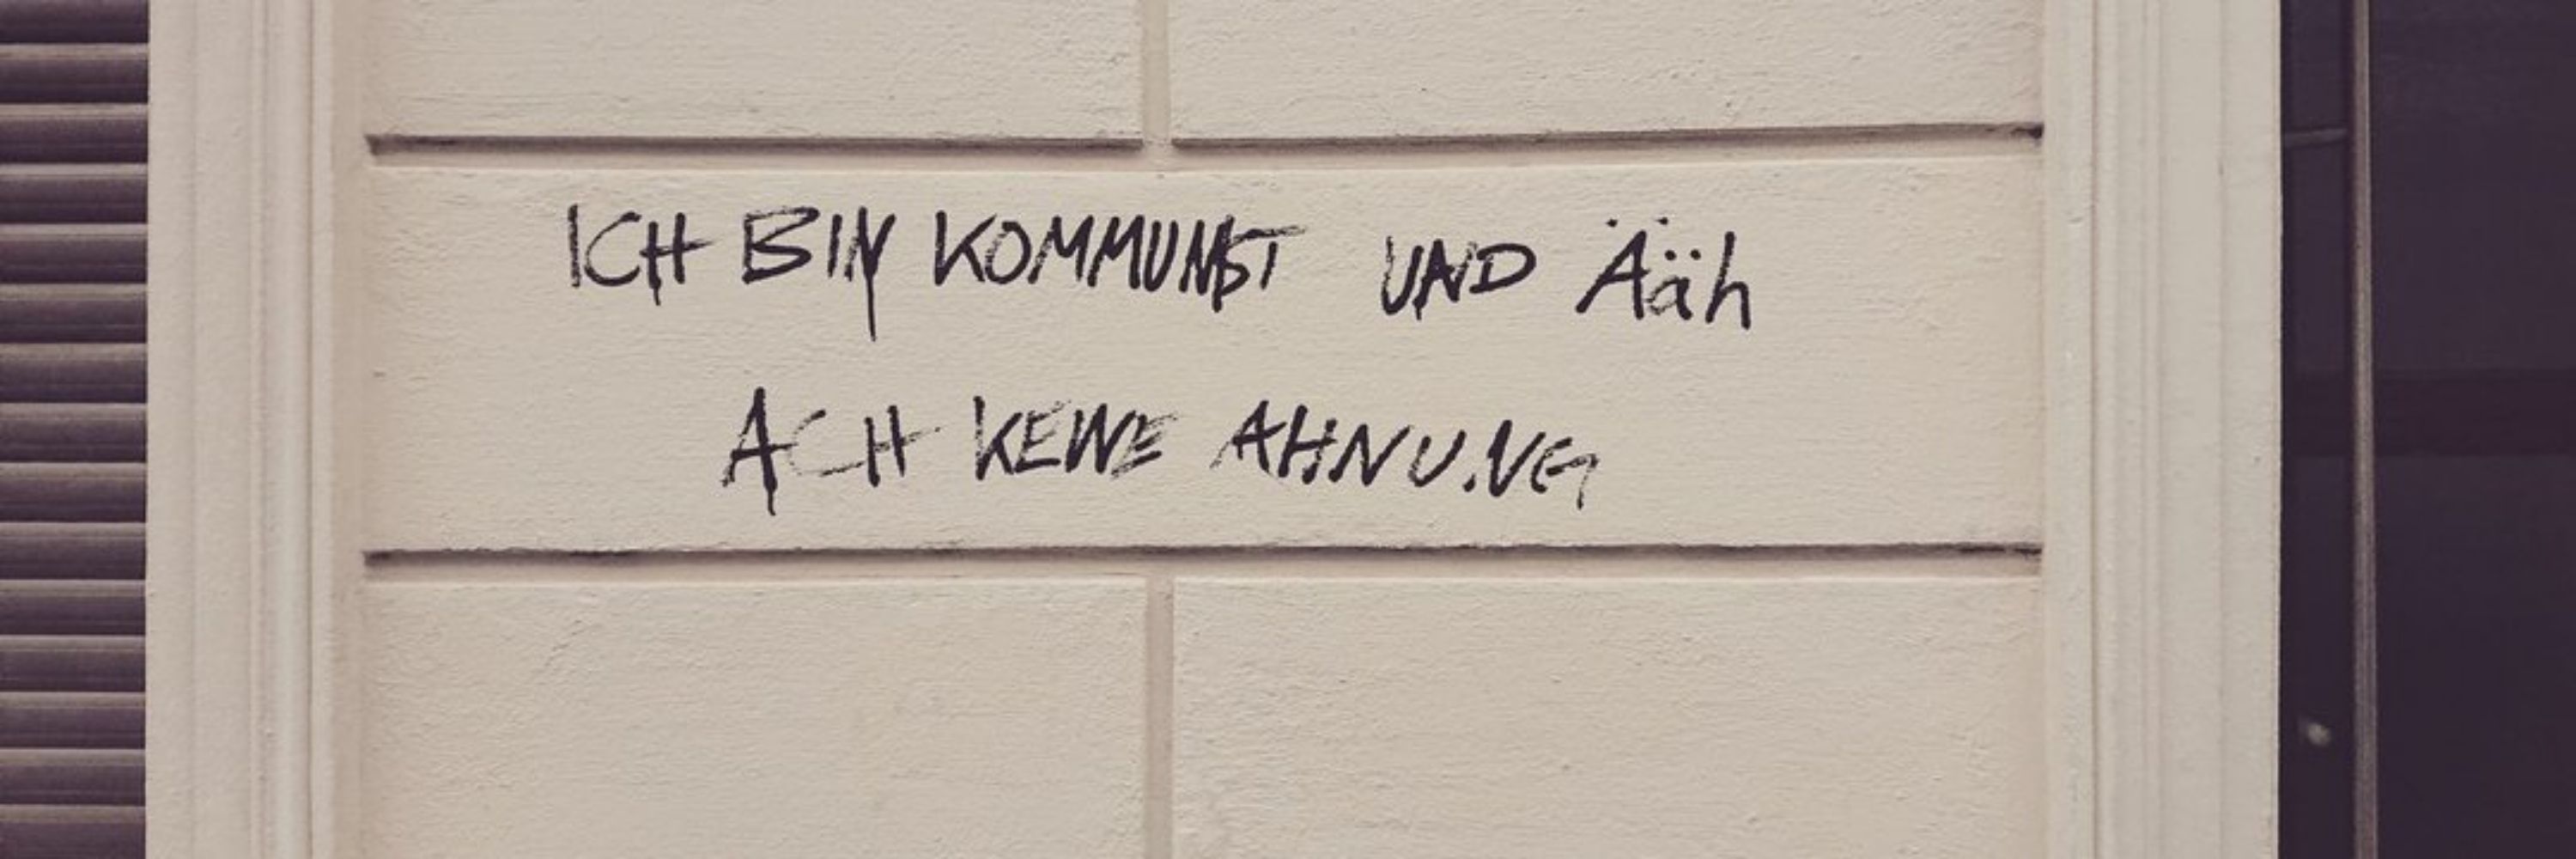 ICH BIN KOMMUNIST UND Äähh
ACH KEINE AHNUNG